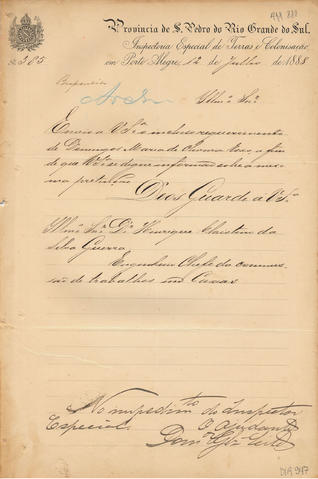 Provincia de S. Pedro do Rio Grande do Sul.
Inspectoria Especial de Terras e Colonisação
em Porto Alegre, 12 de Julho de 1888
N. 385
Illmº Snr.
Envio a V.Sª o incluso requerimento
de Domingos Maria de a fim
de que V.Sª se digne informar sobre a mes-
ma pretenção
Deos Guarde a V.Sª
Illmº Snr. Dr. Henrique Christino da
Silva Guerra
Engenheiro Chefe da commis-
são de trabalhos em Caxias
No impedimto do Inspetor
Especial
O Ajudante
DIG 917